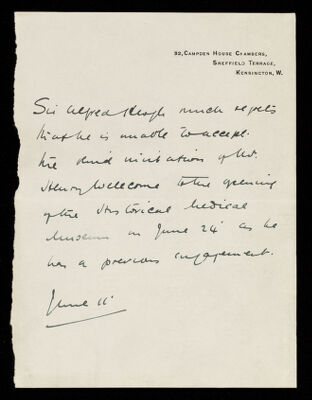 32, CAMPDEN HOUSE CHAMBERS,
SHEFFIELD TERRACE,
KENSINGTON, W.
Sir Alfred Keogh much regrets
that he is unable to accept
the kind invitation of Mr.
Henry Wellcome to the opening
of the Historical Medical
Museum on June 24 as he
has a previous engagement.
June 11.